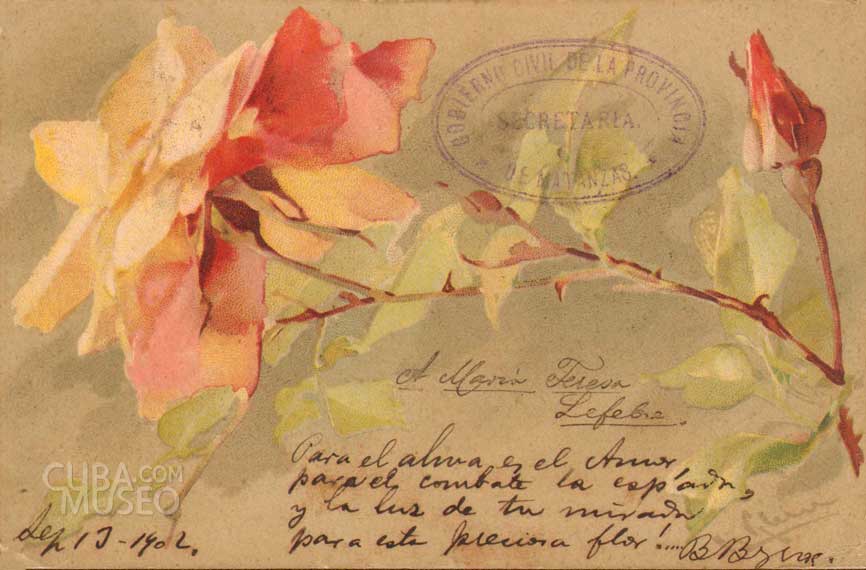 GOBIERNO CIVIL DE LA PROVINCIA
SECRETARIA.
DE MATANZAS.
A María Teresa
Lefebre.
Para el alma es el Amor,
para el combate la espada,
y la luz de tu mirada
para esta preciosa flor!....
B Byrne.
Sep 13-1902.
CUBA.COM
MUSEO